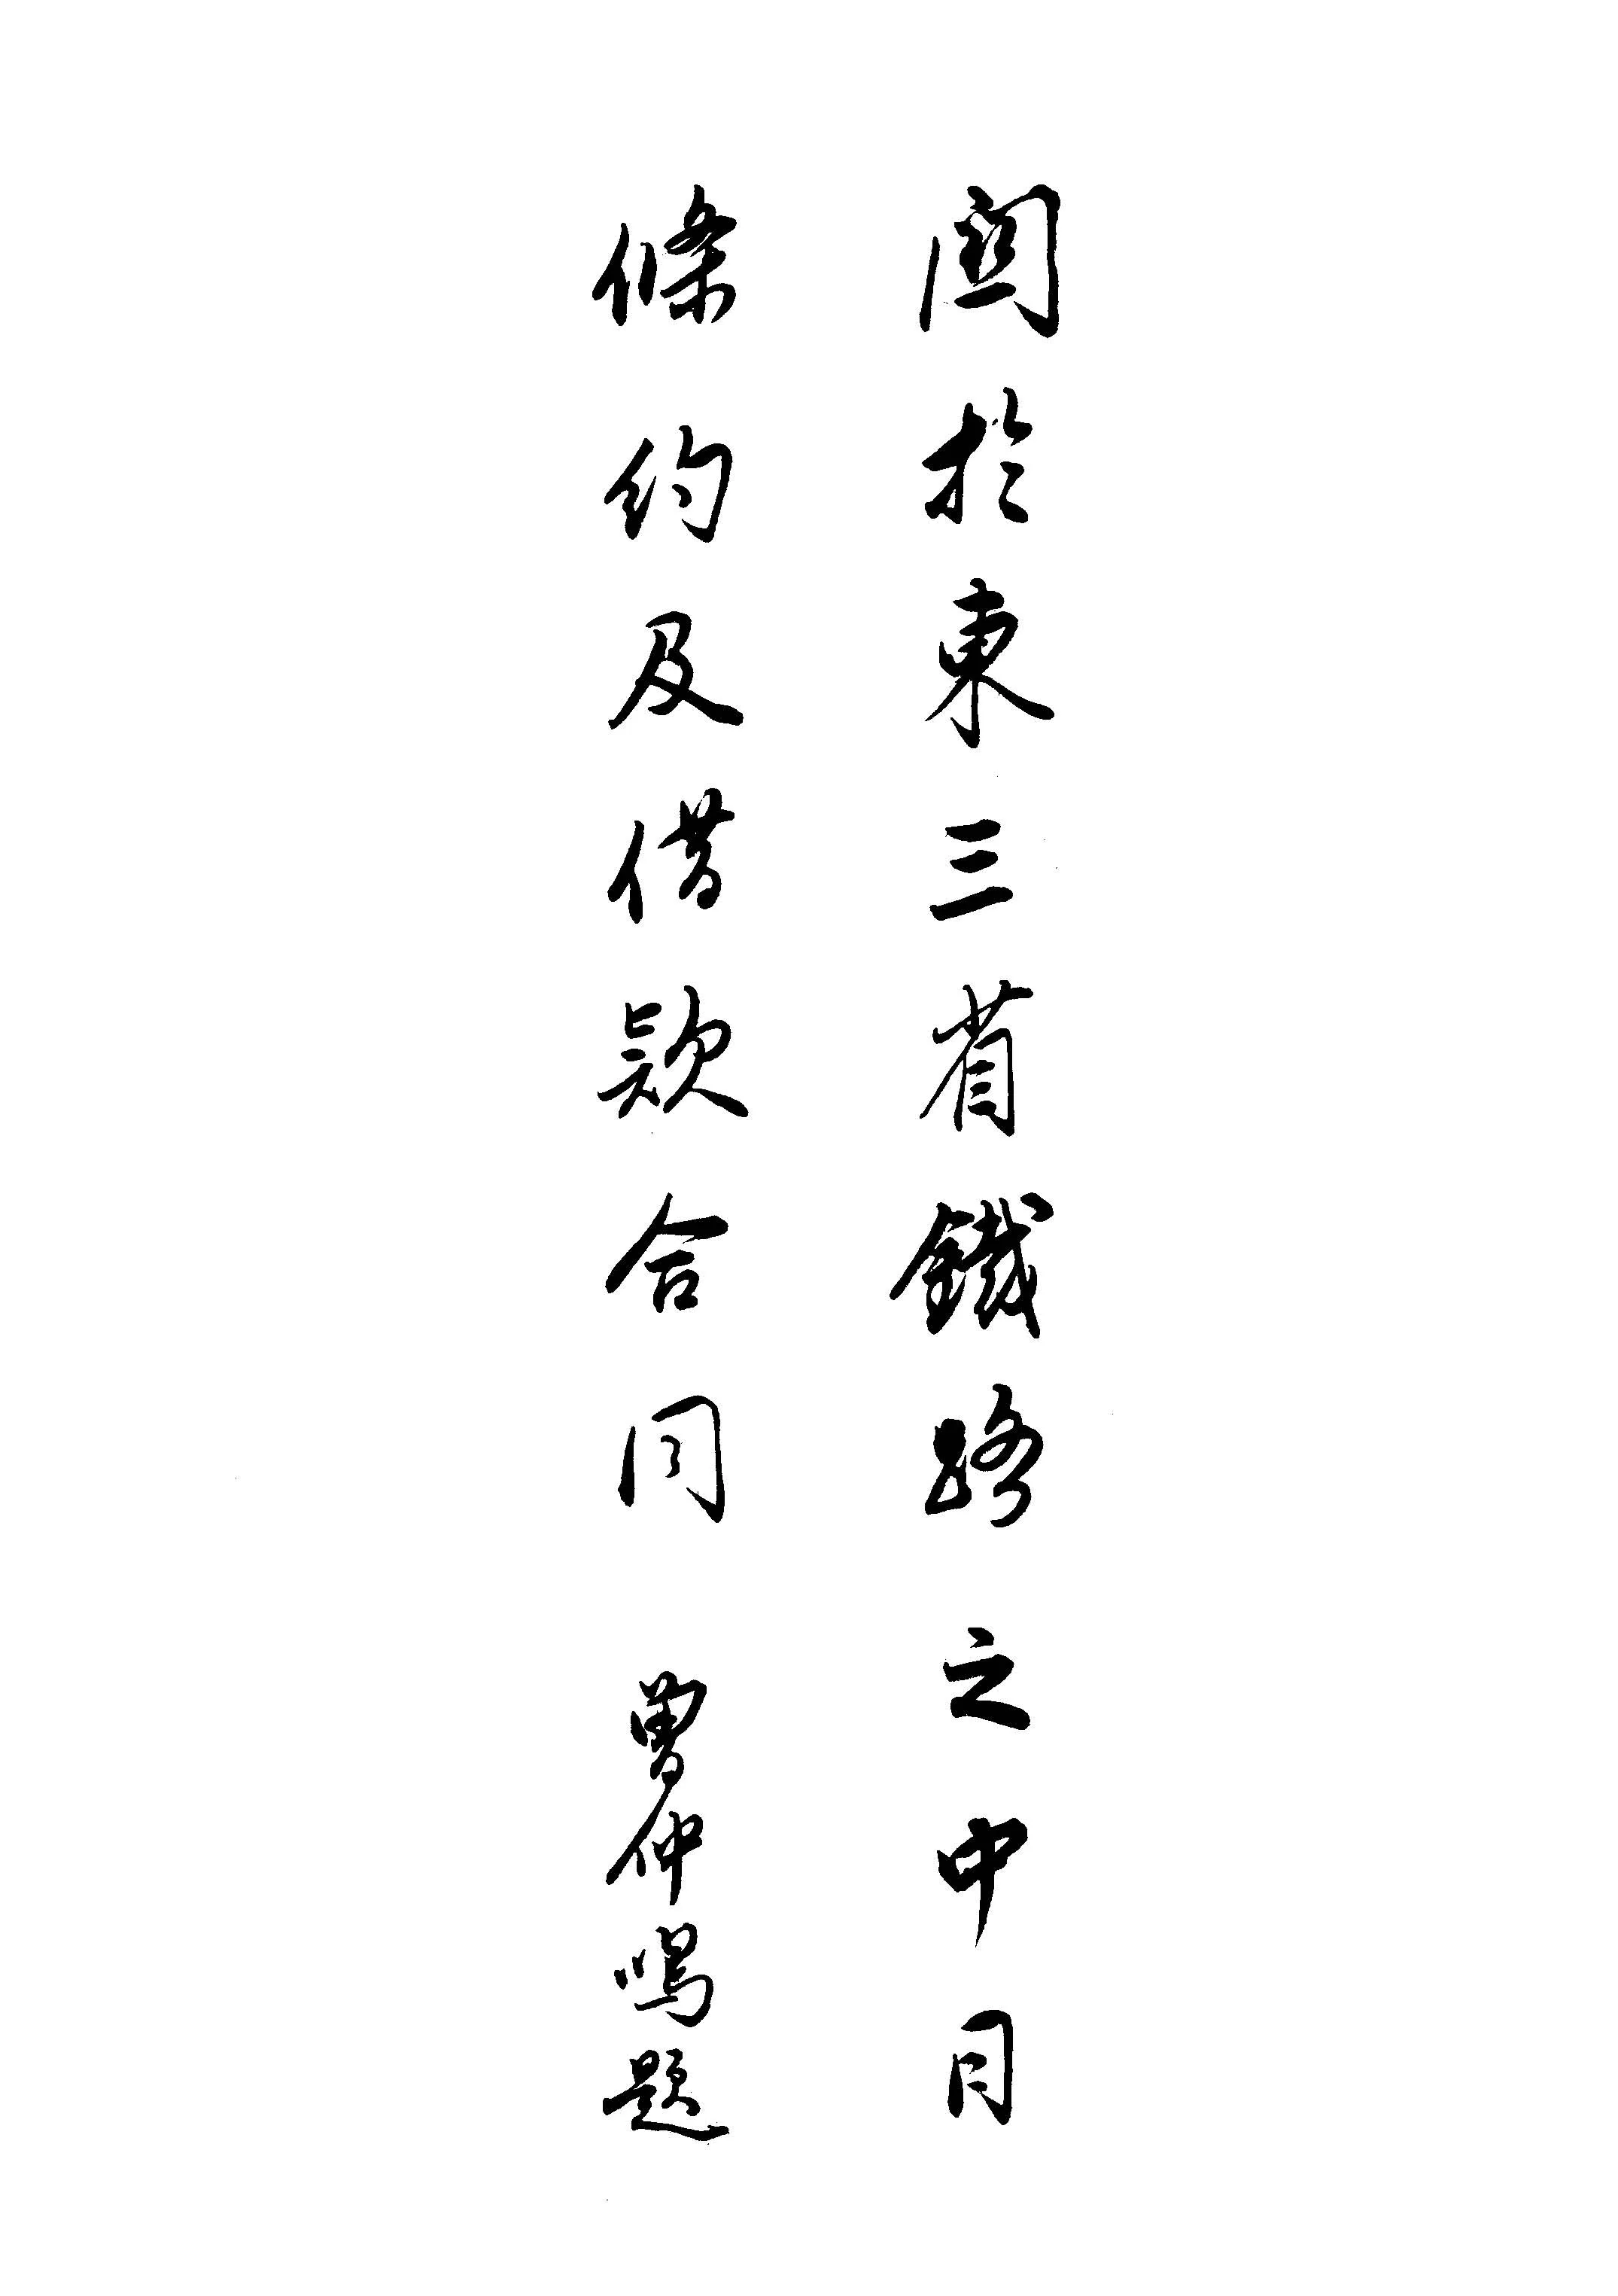 關於東三省鐵路之中日
條約及借款合同　曾仲鳴題